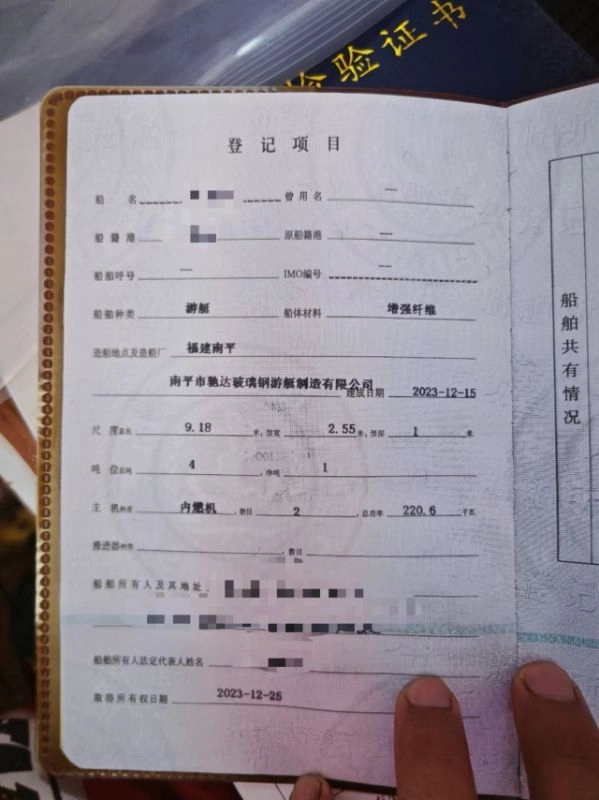 检验证书
登记项目
船名 曾用名 —
船籍港 原船籍港 —
船舶呼号 — IMO编号
船舶种类 游艇 船体材料 增强纤维
造船地点及造船厂 福建南平
南平市驰达玻璃钢游艇制造有限公司 建成日期 2023-12-15
尺度总长 9.18 米,型宽 2.55 米,型深 1 米
吨位总吨 4 ,净吨 1
主机种类 内燃机 ,数目 2 ,总功率 220.6 千瓦
推进器种类 ,数目
船舶所有人及其地址
船舶所有人法定代表人姓名
取得所有权日期 2023-12-25
船舶共有情况